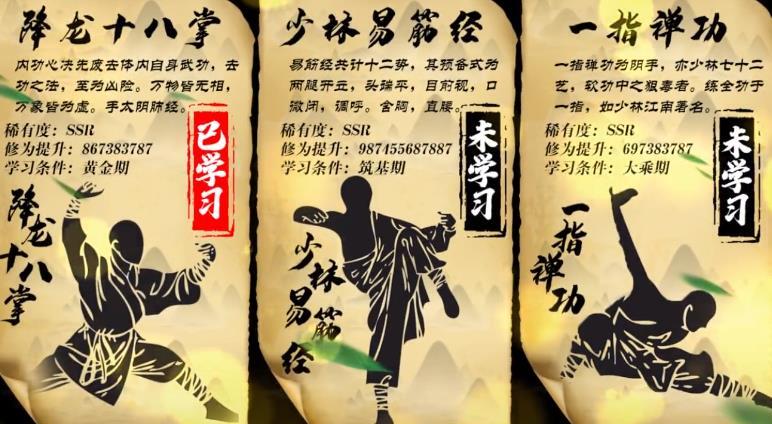 降龙十八掌
内功心决先废去体内自身武功，去
功之法，至为凶险。万物皆无相，
万象皆为虚。手太阴肺经。
稀有度：SSR
修为提升：867383787
学习条件：黄金期
已学习
降龙
十八掌
少林易筋经
易筋经共计十二势，其预备式为
两腿开立，头端平，目前视，口
微闭，调呼。含胸，直腰。
稀有度：SSR
修为提升：987455687887
学习条件：筑基期
未学习
少林
易筋
经
一指禅功
一指禅功为阴手，亦少林七十二
艺，软功中之狠毒者。练全功于
一指，如少林江南署名。
稀有度：SSR
修为提升：697383787
学习条件：大乘期
未学习
一指
禅功